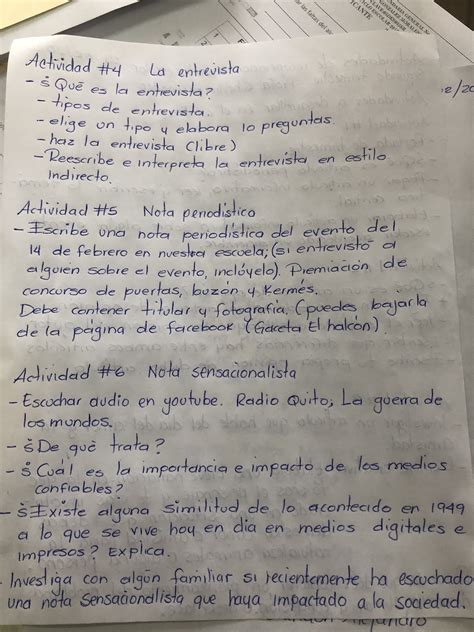 Actividad #4 La entrevista
- ¿Qué es la entrevista?
- tipos de entrevista.
- elige un tipo y elabora 10 preguntas.
- haz la entrevista (libre)
- Reescribe e interpreta la entrevista en estilo
indirecto.
Actividad #5 Nota periodístico
- Escribe una nota periodística del evento del
14 de febrero en nuestra escuela, (si entrevistó a
alguien sobre el evento, inclúyelo). Premiación de
concurso de puertas, buzón y Kermés.
Debe contener titular y fotografía, (puedes bajarla
de la página de facebook (Gaceta El halcón).
Actividad #6 Nota sensacionalista
- Escuchar audio en youtube. Radio Quito, La guerra de
los mundos.
- ¿De qué trata?
- ¿Cuál es la importancia e impacto de los medios
confiables?
- ¿Existe alguna similitud de lo acontecido en 1949
a lo que se vive hoy en día en medios digitales e
impresos? Explica.
- Investiga con algún familiar si recientemente ha escuchado
una nota sensacionalista que haya impactado a la sociedad.